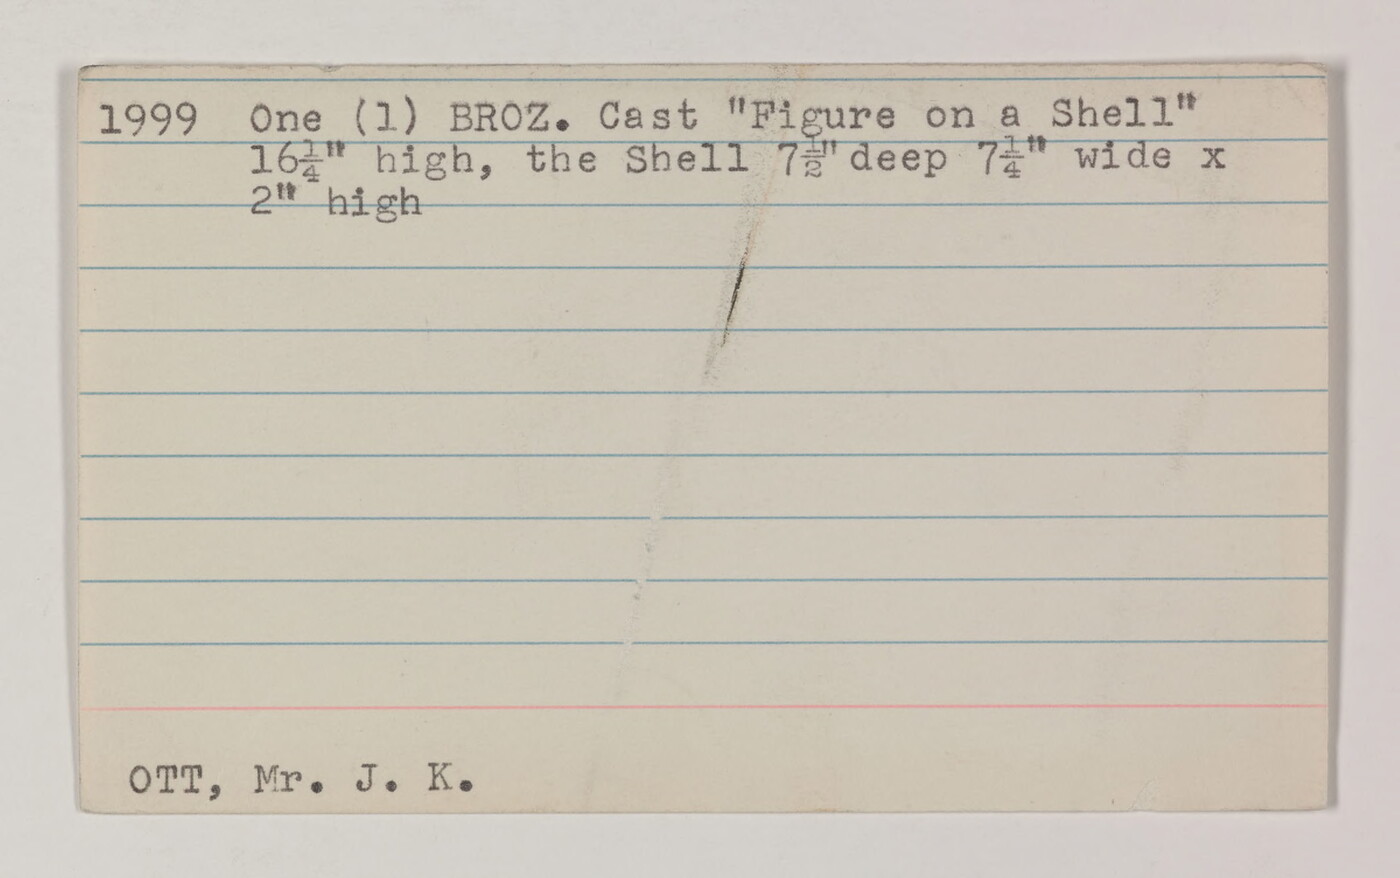 1999 One (1) BROZ. Cast "Figure on a Shell"
16¼" high, the Shell 7½" deep 7¼" wide x
2" high
OTT, Mr. J. K.